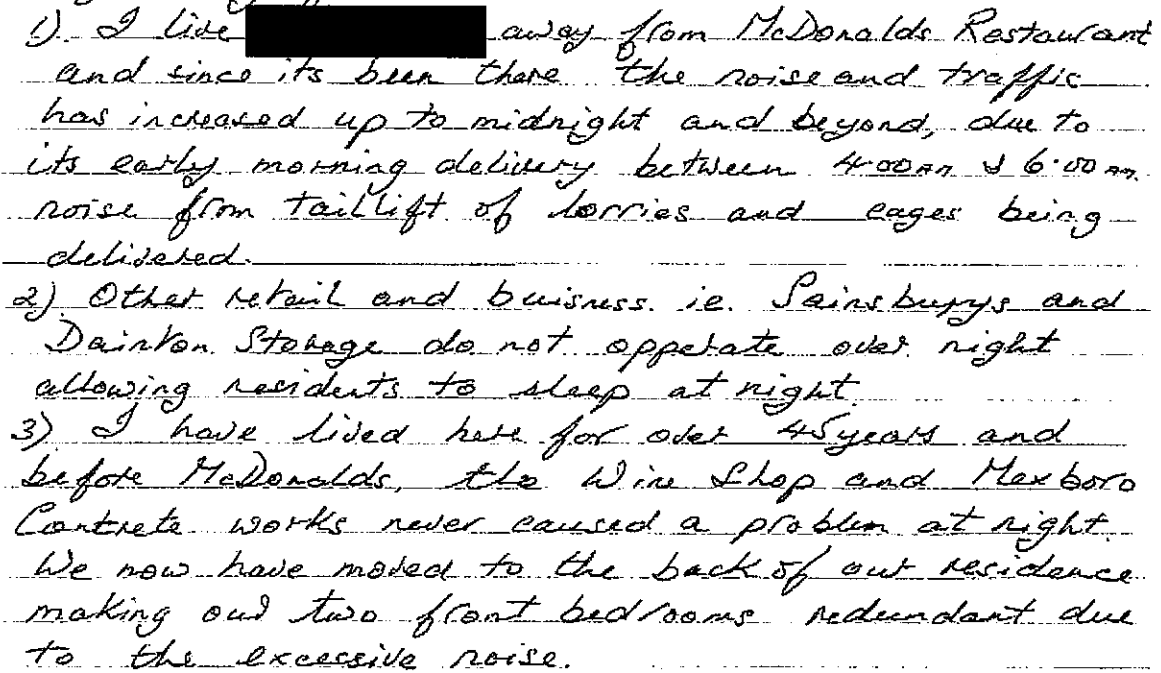 1). I live away from McDonalds Restaurant
and since its been there the noise and traffic
has increased up to midnight and beyond, due to
its early morning delivery between 4.00am & 6.00am.
noise from taillift of lorries and cages being
delivered.
2) Other retail and buisness. ie. Sainsburys and
Dainton Storage do not opperate over night
allowing residents to sleep at night.
3) I have lived here for over 45 years and
before McDonalds, the Wine Shop and Mexboro
Contrete works never caused a problem at night.
We now have moved to the back of our residence
making our two front bedrooms redundant due
to the excessive noise.